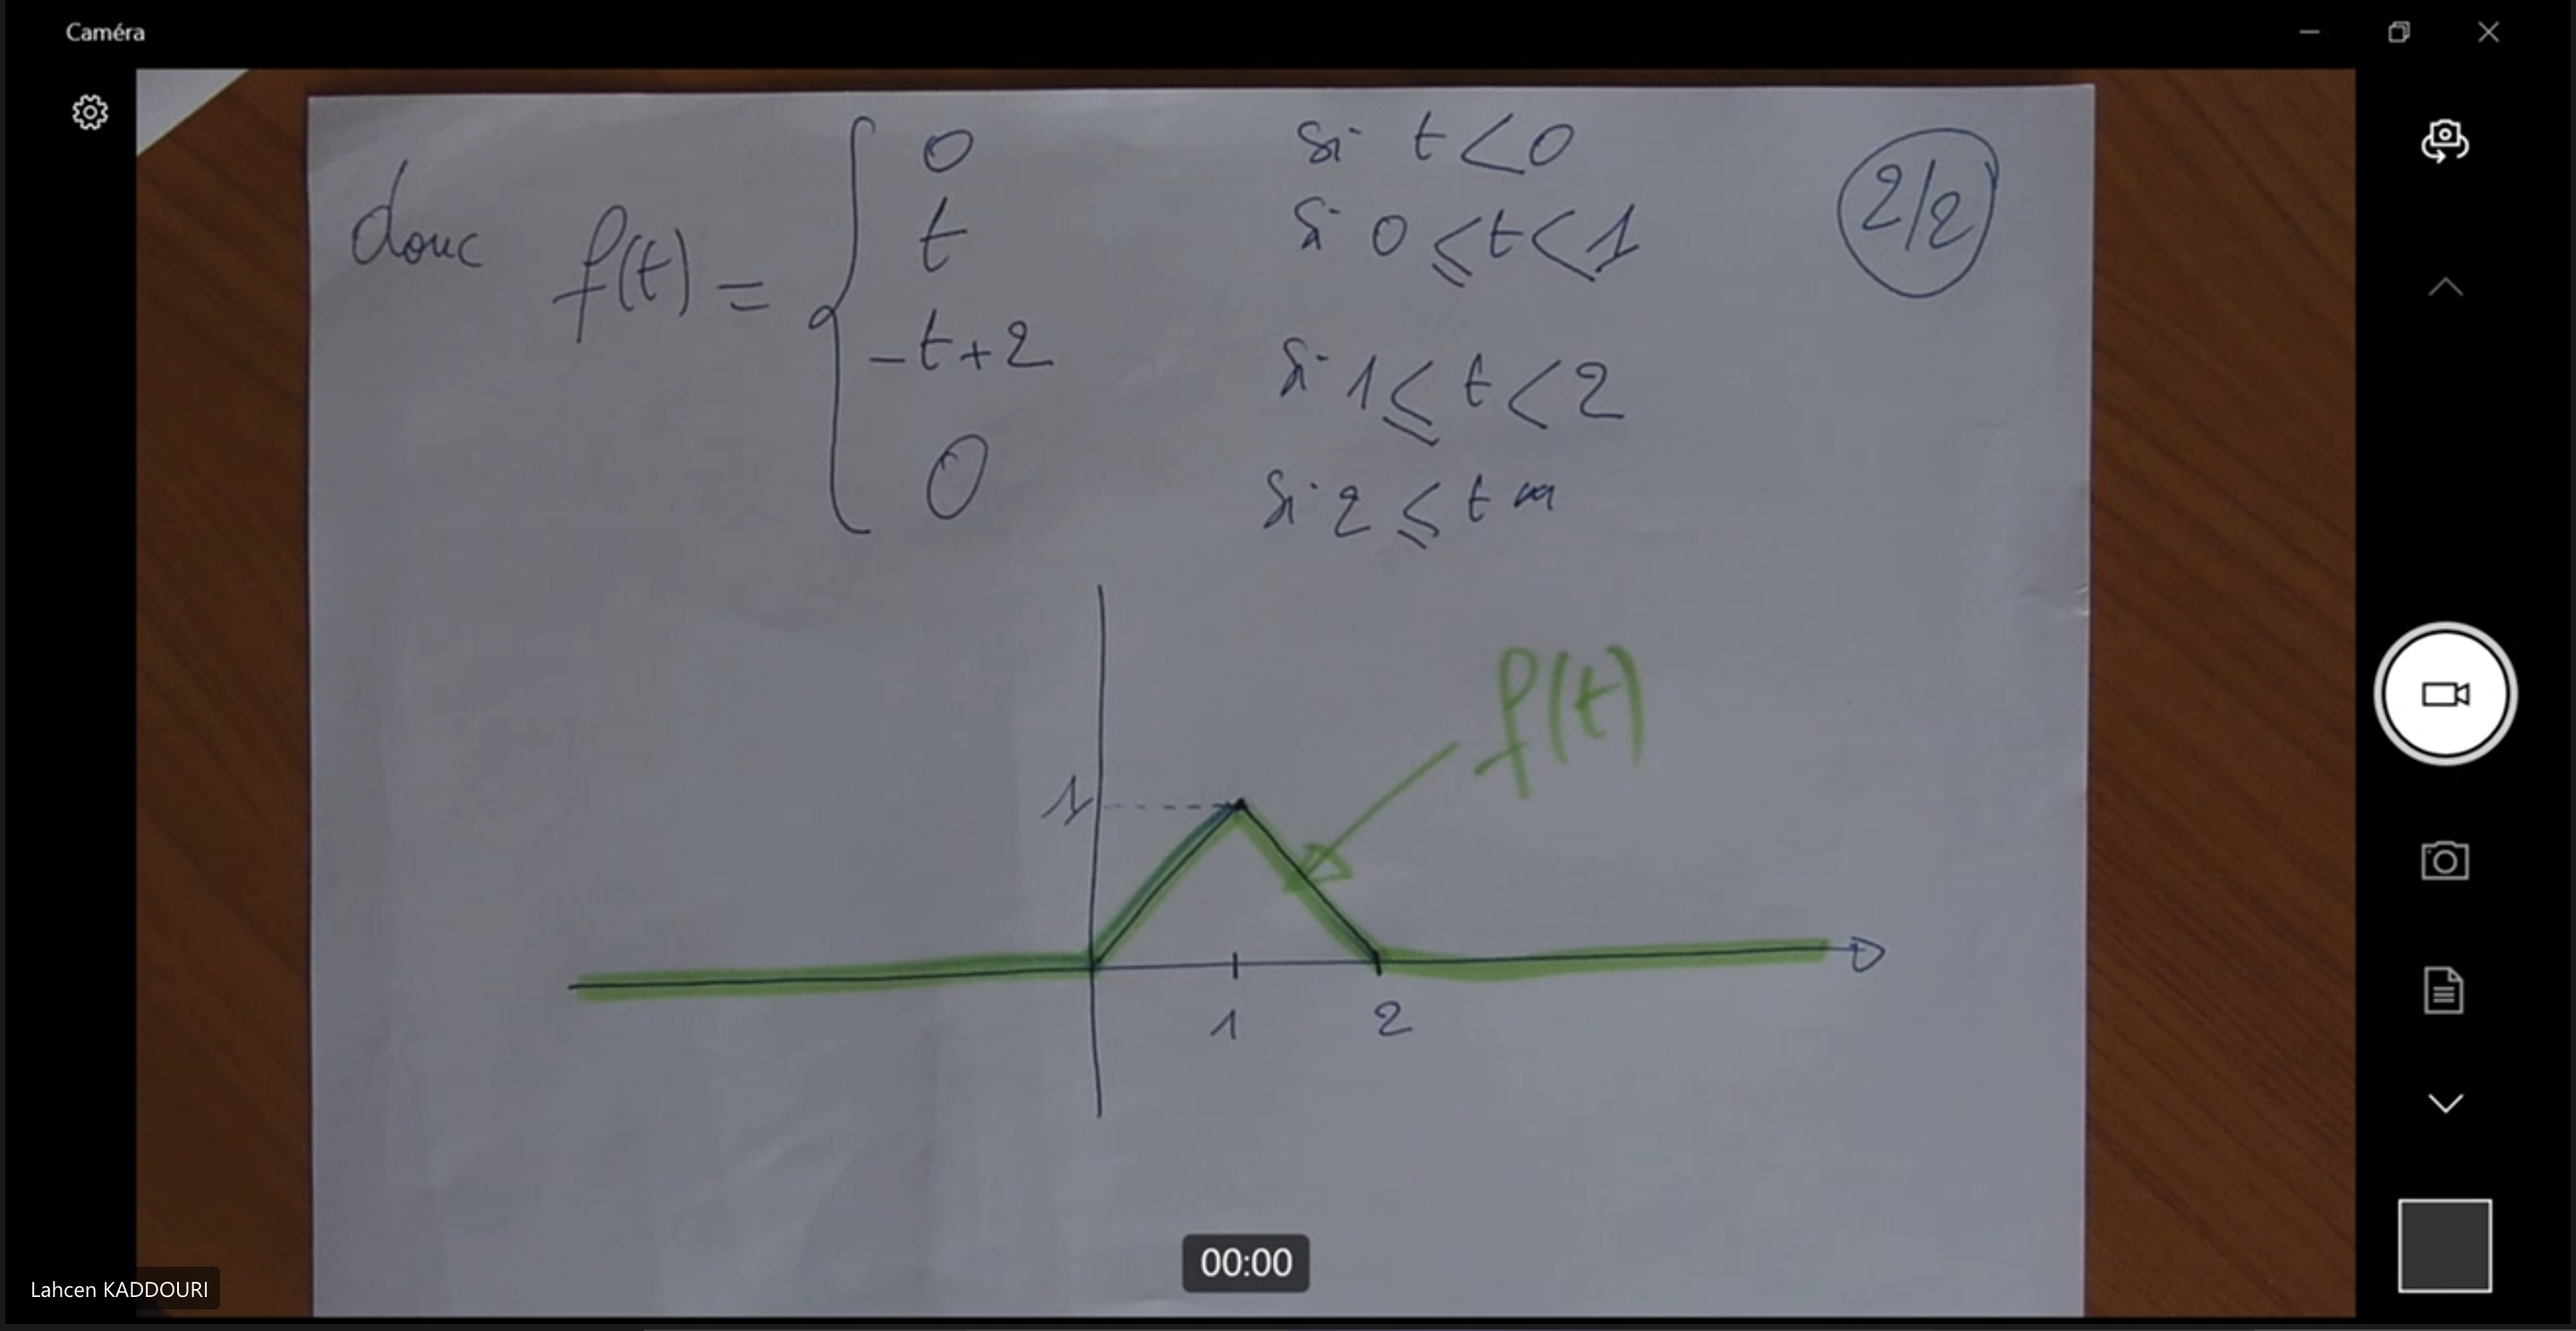 Caméra
donc f(t) = { 0 si t < 0
t si 0 ≤ t < 1
-t+2 si 1 ≤ t < 2
0 si 2 ≤ t
2/2
f(t)
1
1 2
00:00
Lahcen KADDOURI